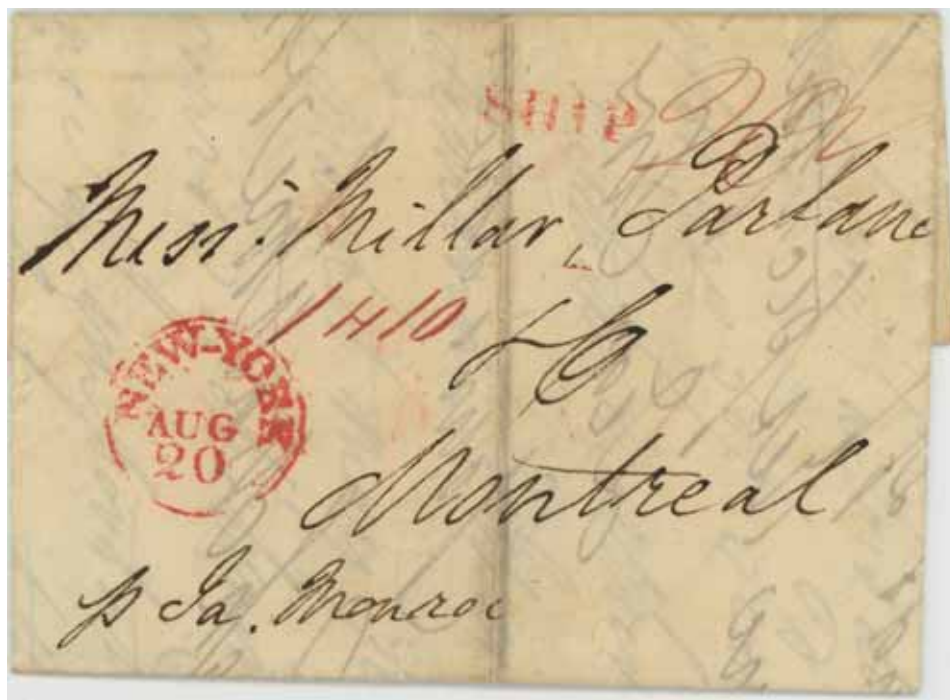 SHIP
Messrs. Millar, Parlane
1 N 10
& Co
NEW-YORK
AUG
20
Montreal
p Ja. Monroe